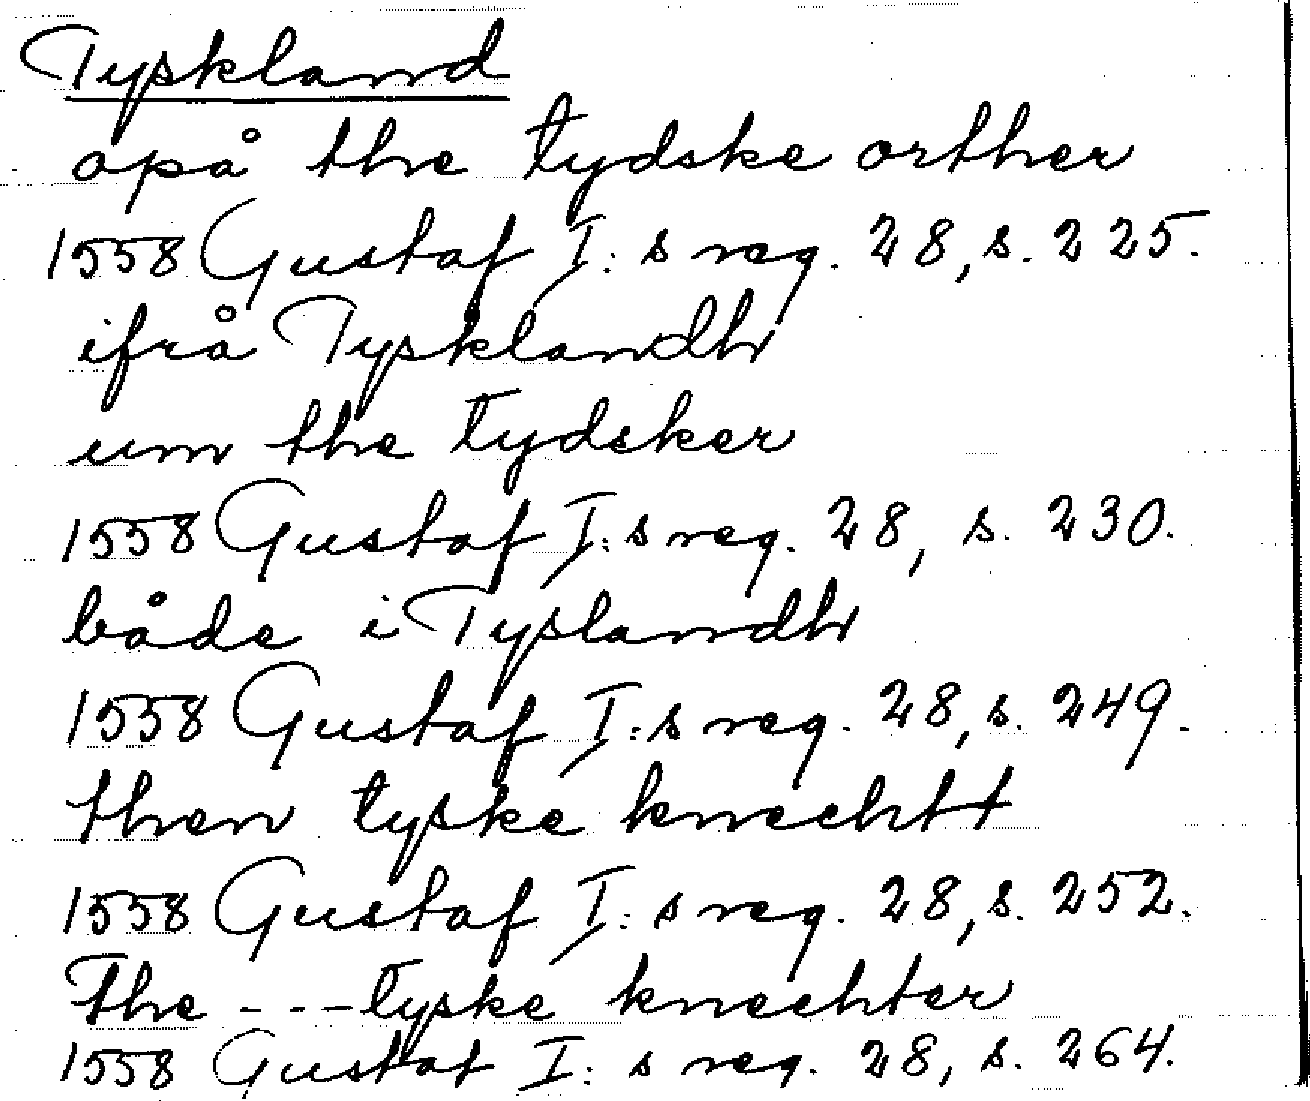 Tyskland
opå the tydske orther
1558 Gustaf I:s reg. 28, s. 225.
ifrå Tysklandh
um the tydsker
1558 Gustaf I:s reg. 28, s. 230.
både i Tyslandh
1558 Gustaf I:s reg. 28, s. 249.
then tyske knechtt
1558 Gustaf I:s reg. 28, s. 252.
The - - - tyske knechter
1558 Gustaf I:s reg. 28, s. 264.